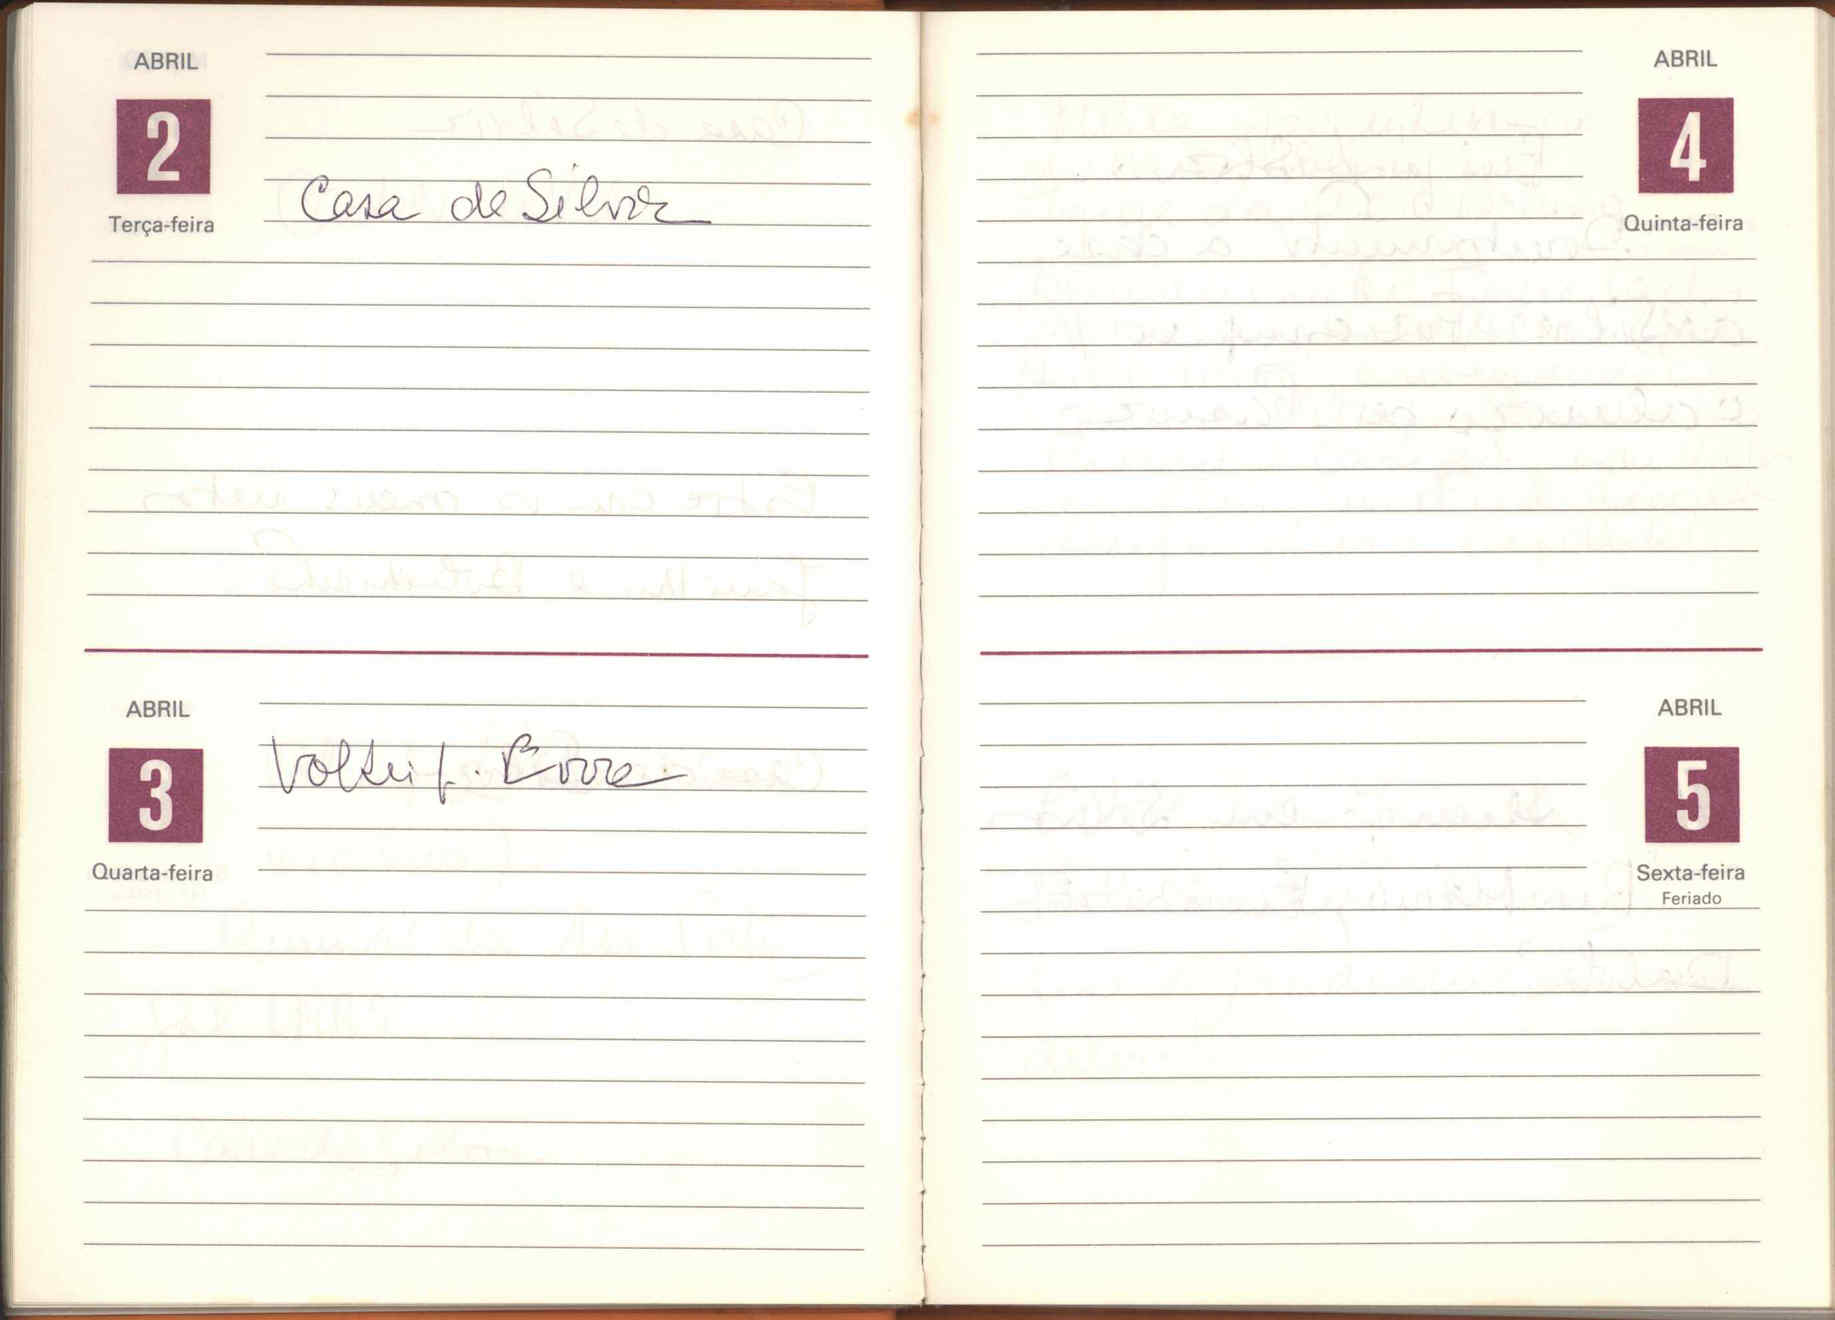 ABRIL
2
Terça-feira
Casa de Silvia
ABRIL
3
Quarta-feira
Voltei p.
ABRIL
4
Quinta-feira
ABRIL
5
Sexta-feira
Feriado